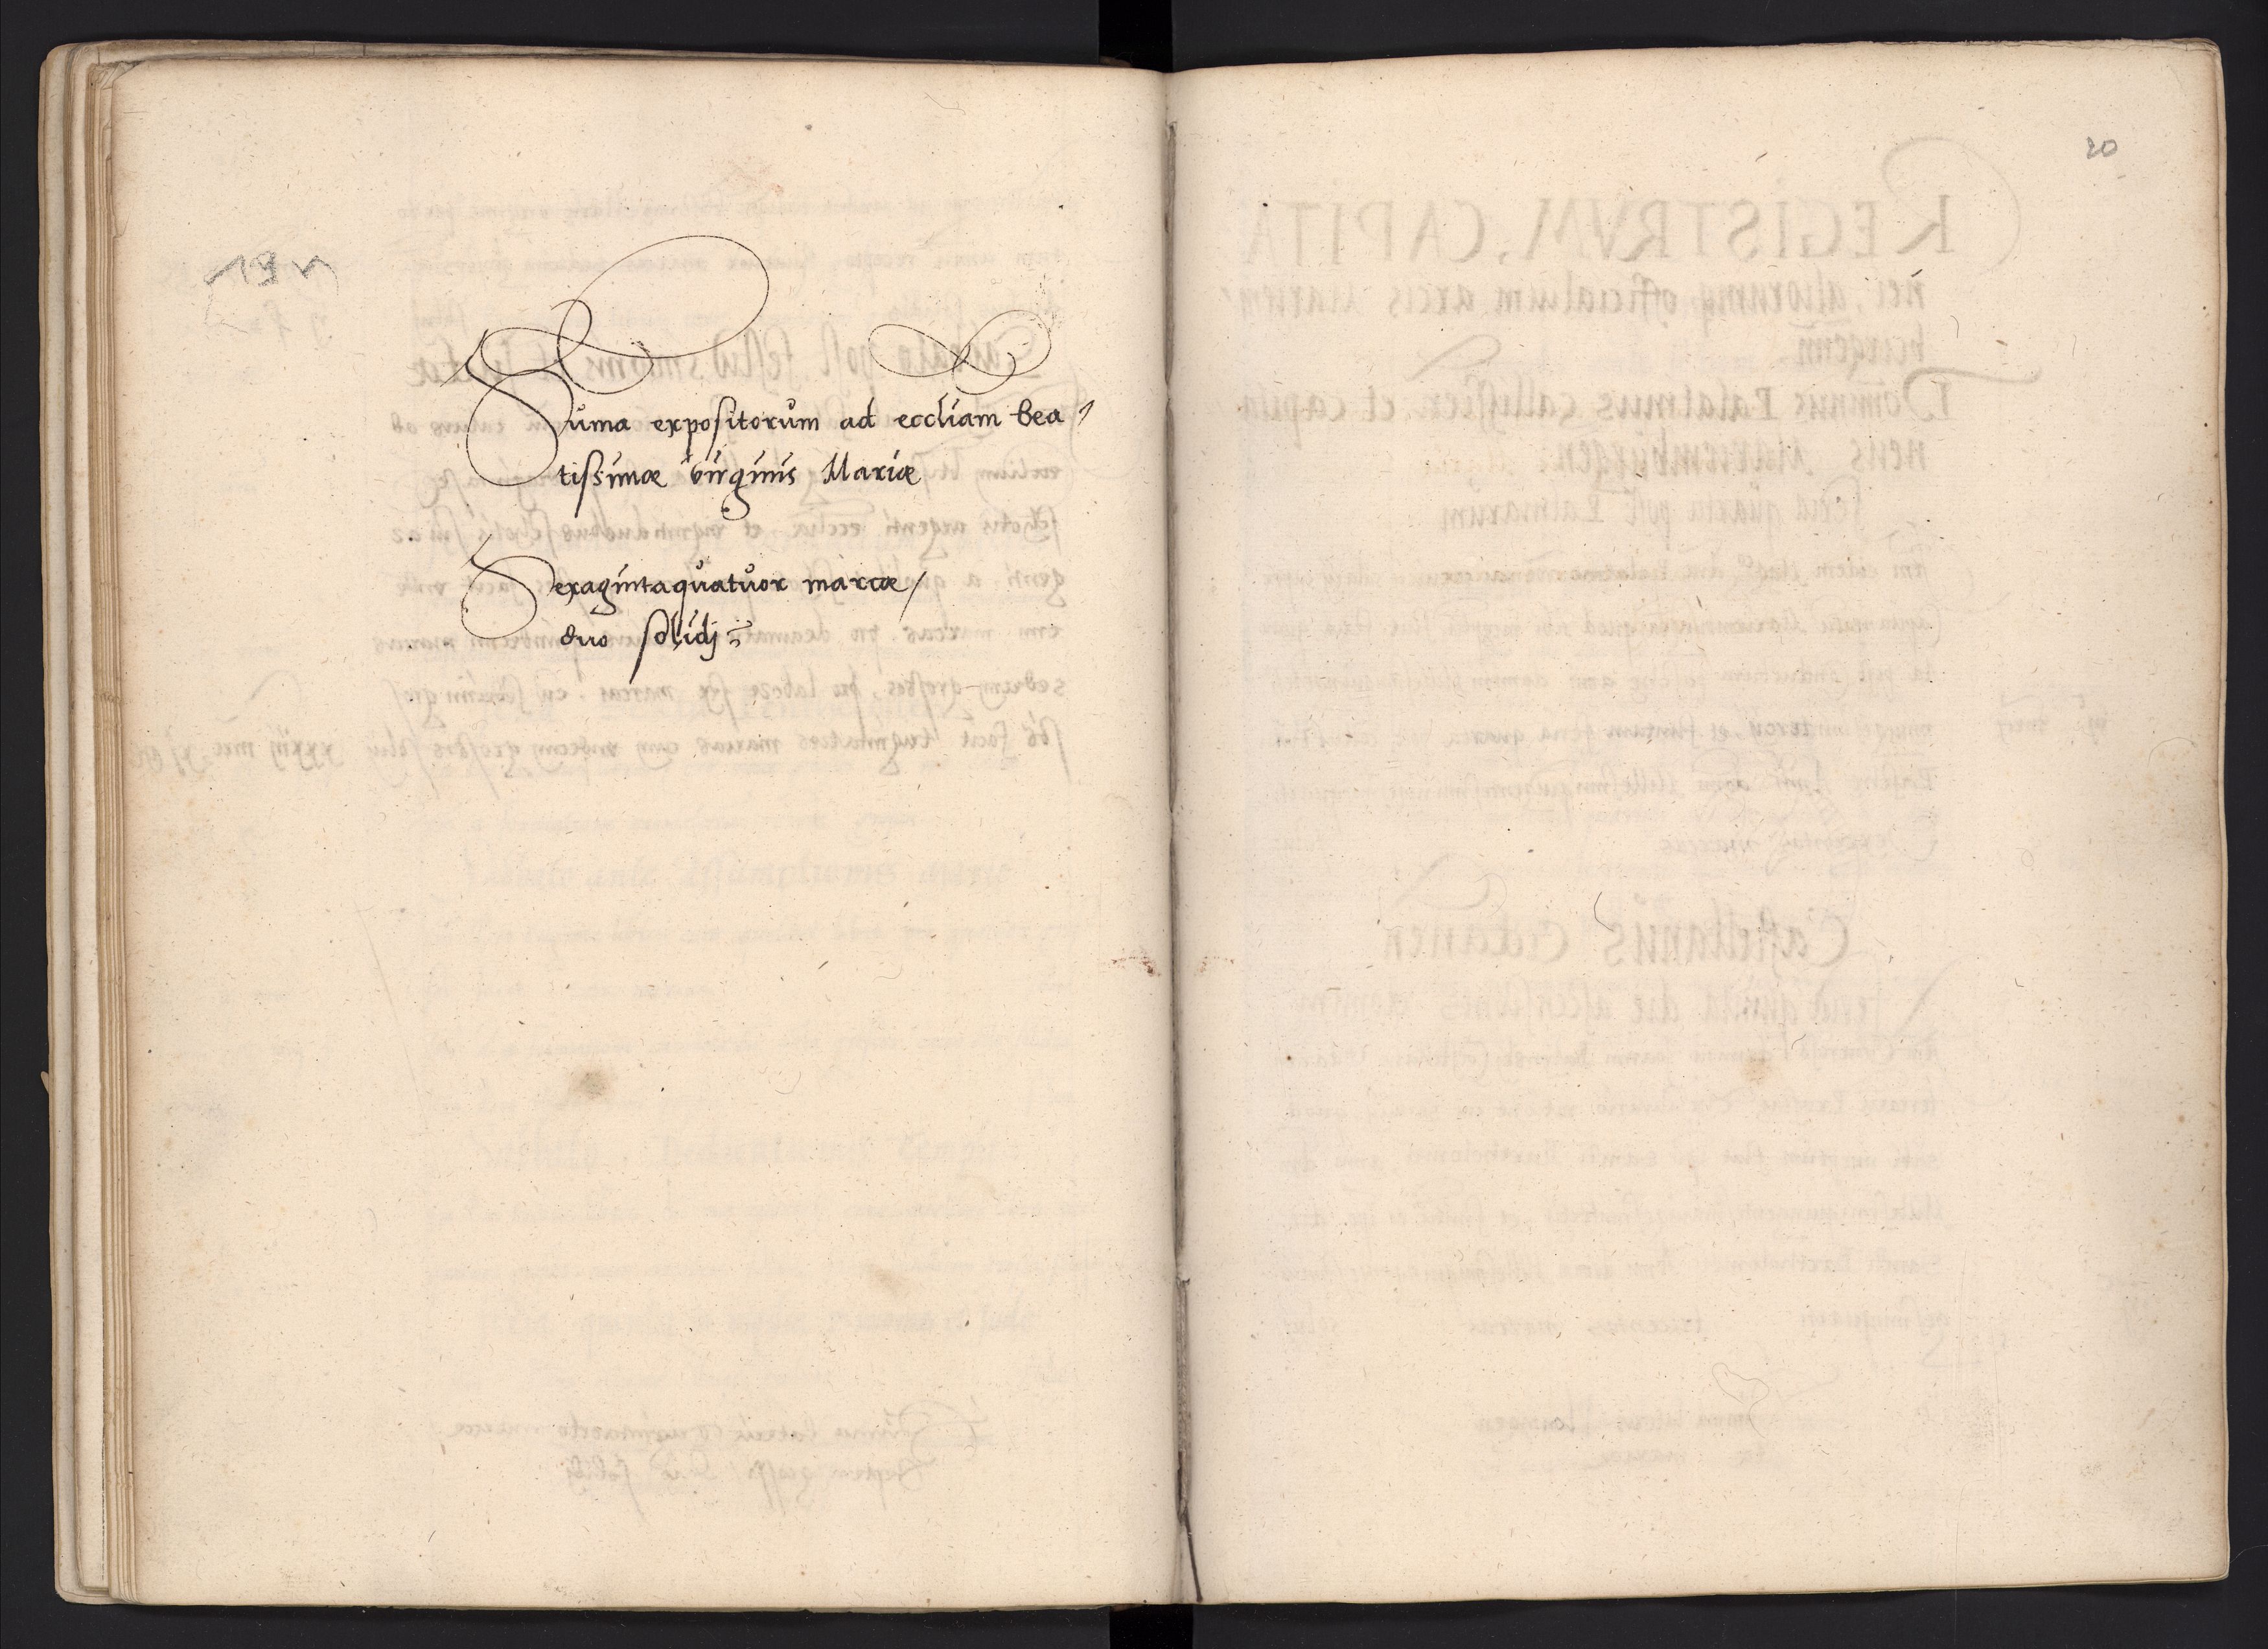 Suma expositorum ad eccliam bea
tissimæ virginis Mariæ
Sexagintaquatuor marcæ/
duo solidj
20